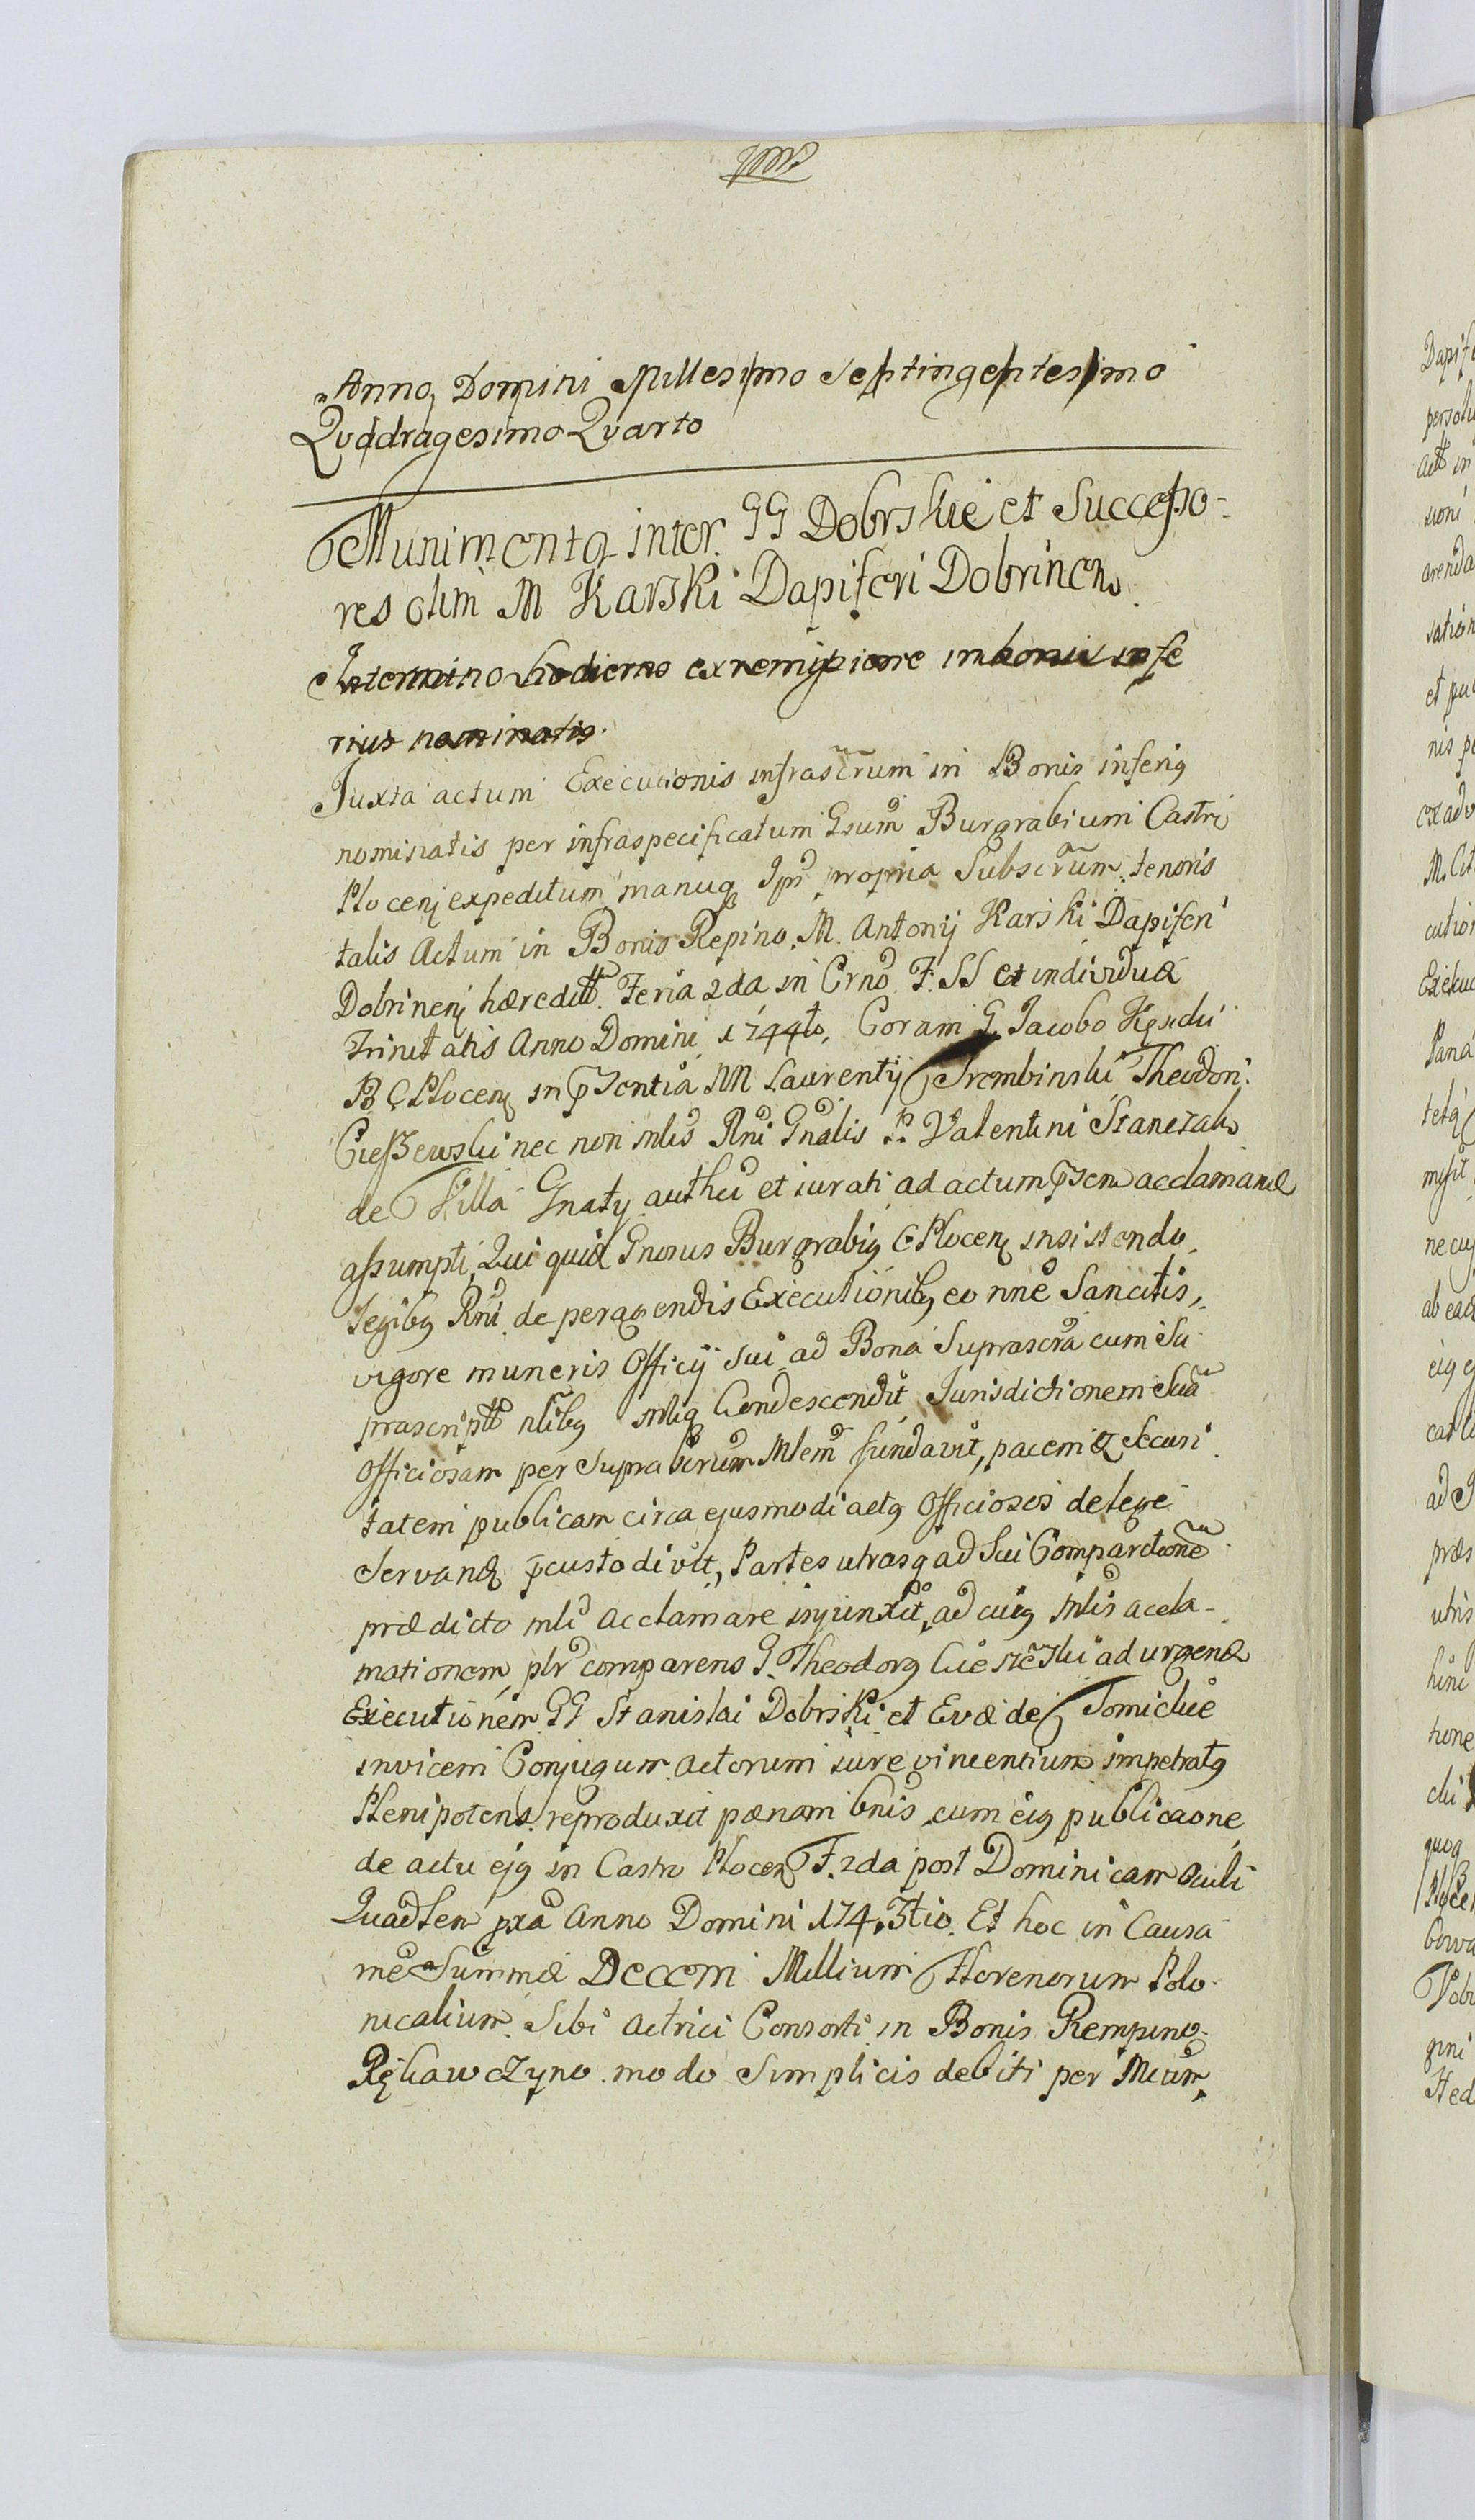 Anno Domini Millesimo Septingentesimo
Quadragesimo Quarto
Munimenta inter GG Dobrskie et Successo-
res olim M Karski Dapiferi Dobrinen
In termino hodierno ex remissione in bonis infe
rius nominatis.
Juxta actum Executionis infrascrum in Bonis inferig
nominatis per infraspecificatum Gsum Burgrabium Castri
Plocen expeditum manuq Ips propria Subscrum tenoris
talis Actum in Bonis Repino M. Antonij Karski Dapiferi
Dobrinen hæreditt. Feria 2da in Crno F. SS et individuæ
Trinitatis Anno Domini 1744to, Coram G Jacobo
B C Plocen in pntia NN Laurentij Trembinski Theodori
Cieszewski nec non mlis Rni Gnalis P. Valentini Stanczak
de Villa Gnaty authci et iurati ad actum pnsen acclamand
assumpti, Qui quid Gnosus Burgrabig C Plocen insistendo
legibg Rni de peragendis Executionibg eo nne Sancitis,
vigore muneris Officij sui ad Bona Suprascra cum Su
prascriptt nlibg mlig Condescendit Jurisdictionem Sua
Officiosam per Suprascrum Mlem fundavit, pacem & Securi
tatem publicam circa ejusmodi actg Officiosos de lege
Servand pcustodivit, Partes utrasq ad Sui Compartionem
prædicto mli acclamare injunxit, ad cuig Mlis accla-
mationem plr comparens G. Theodorg Cieszewski ad urgend
Executionem GG Stanislai Dobrski et Evæ de Tomickie
invicem Conjugum Actorum iure vincentium impetratg
Plenipotens reproduxit pænam bnis cum eig publicaone
de actu ejg in Castro Plocen F. 2da post Dominicam Oculi
Quadlem pxa Anno Domini 1743tio. Et hoc in Causa
me Summæ Decem Millium Florenorum Polo
nicalium Sibi Actrici Consorti in Bonis Rempino
modo Simplicis debiti per Mcum